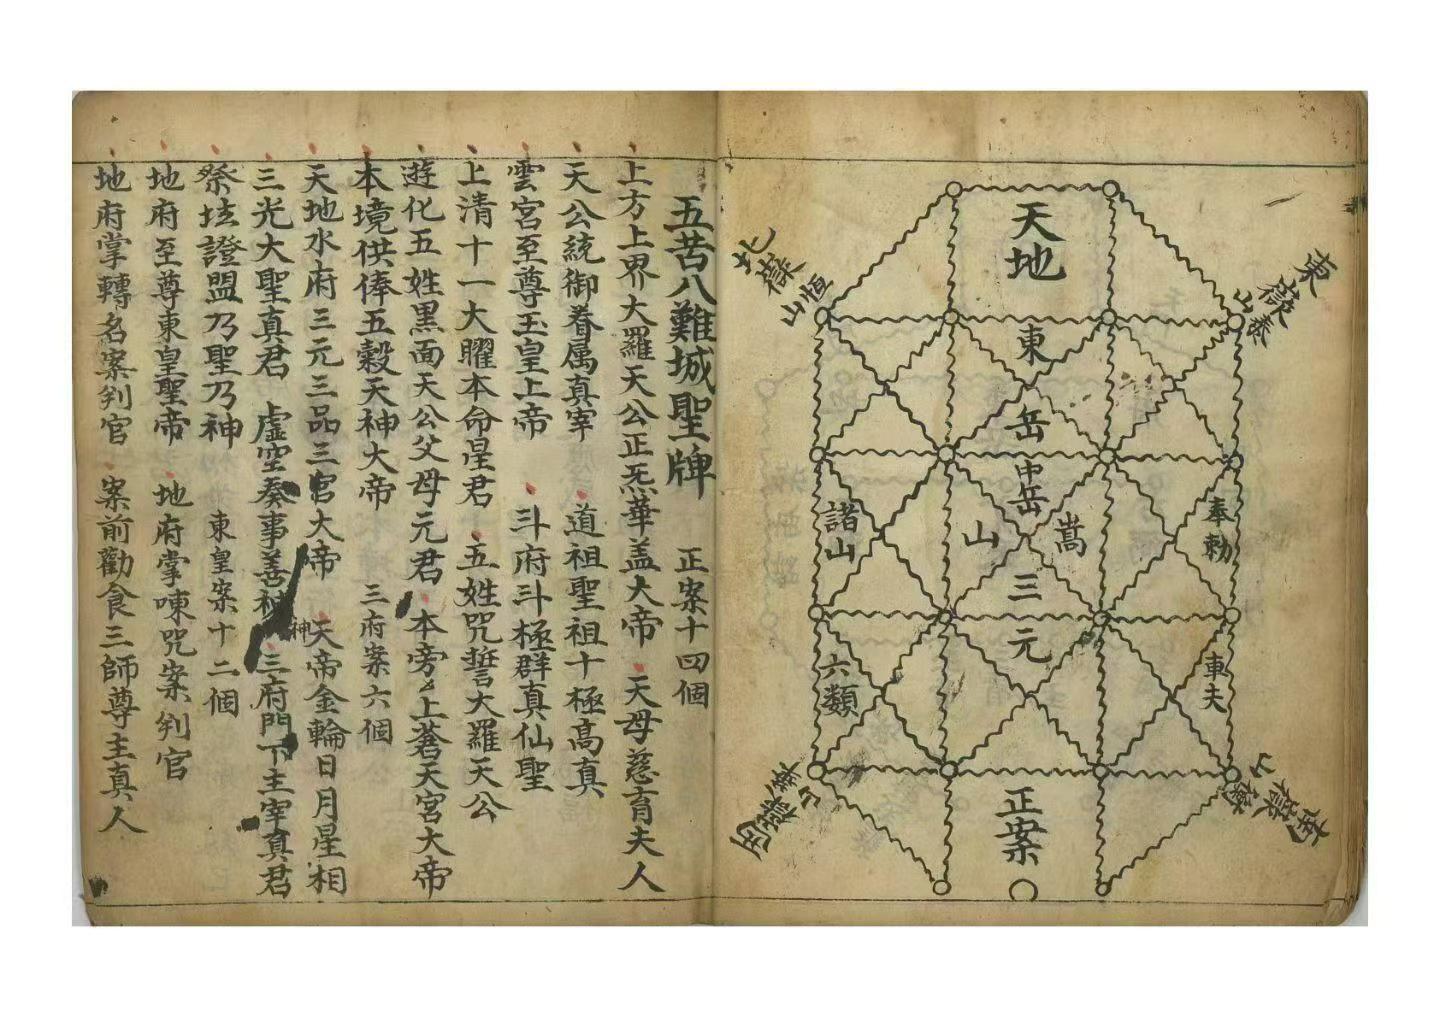 天地
東嶽泰山
北嶽恆山
東岳
中岳
嵩山
諸山
奉勅
三元
六類
車夫
南嶽衡山
西嶽華山
正案
五苦八難城聖牌 正案十四個
上方上界大羅天公正炁華盖大帝 天母慈育夫人
天公統御眷属真宰 道祖聖祖十極高真
雲宮至尊玉皇上帝 斗府斗極群真仙聖
上清十一大曜本命星君 五姓咒誓大羅天公
遊化五姓黑面天公父母元君 本旁上蒼天宮大帝
本境供俸五穀天神大帝 三府案六個
天地水府三元三品三官大帝 天帝金輪日月星相
三光大聖真君 虛空奏事善神 神 三府門下主宰真君
祭坛證盟乃聖乃神 東皇案十二個
地府至尊東皇聖帝 地府掌㖦咒案判官
地府掌轉名案判官 案前勸食三師尊主真人